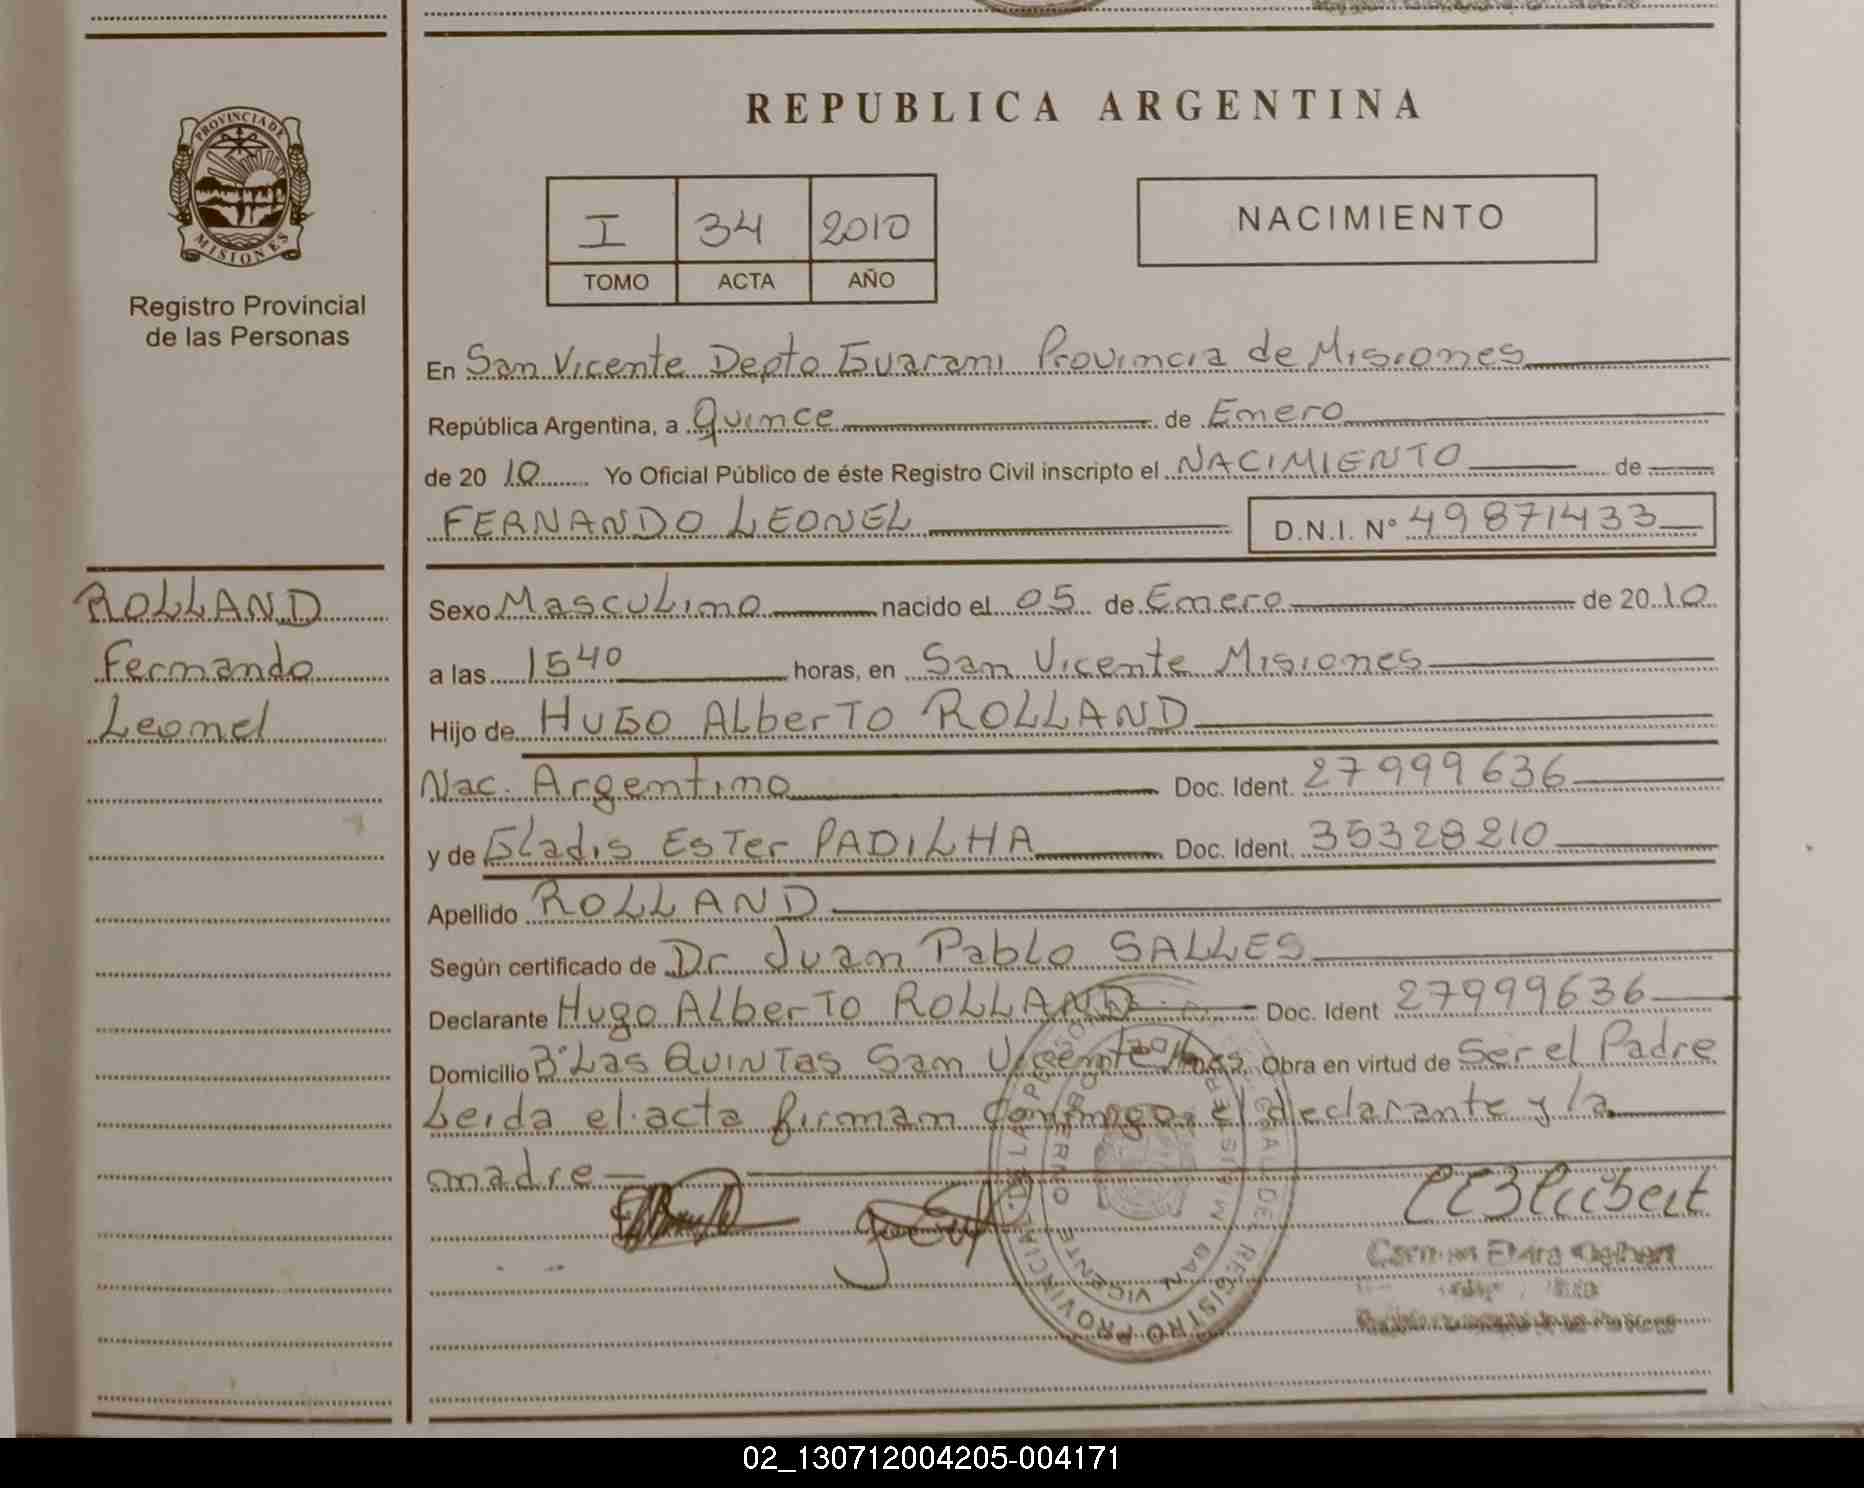 REPUBLICA ARGENTINA
PROVINCIA DE
MISIONES
Registro Provincial
de las Personas
I 34 2010
TOMO ACTA AÑO
NACIMIENTO
En San Vicente Depto Guarani Provincia de Misiones
República Argentina, a Quince de Enero
de 20 10 Yo Oficial Público de éste Registro Civil inscripto el NACIMIENTO de
FERNANDO LEONEL D.N.I. N° 49871433
ROLLAND
Fernando
Leonel
Sexo Masculino nacido el 05 de Enero de 20 10
a las 1540 horas, en San Vicente Misiones
Hijo de HUGO ALberTO ROLLAND
Nac. Argentino Doc. Ident. 27999636
y de Gladis EsTer PADILHA Doc. Ident. 35328210
Apellido ROLLAND
Según certificado de Dr Juan Pablo SALLES
Declarante Hugo ALberTO ROLLAND Doc. Ident 27999636
Domicilio B° Las QUINTAS San Vicente Mnes. Obra en virtud de Ser el Padre
Leida el acta firman conmigo, el declarante y la
madre
REGISTRO PROVINCIAL DE LAS PERSONAS
SAN VICENTE
02_130712004205-004171